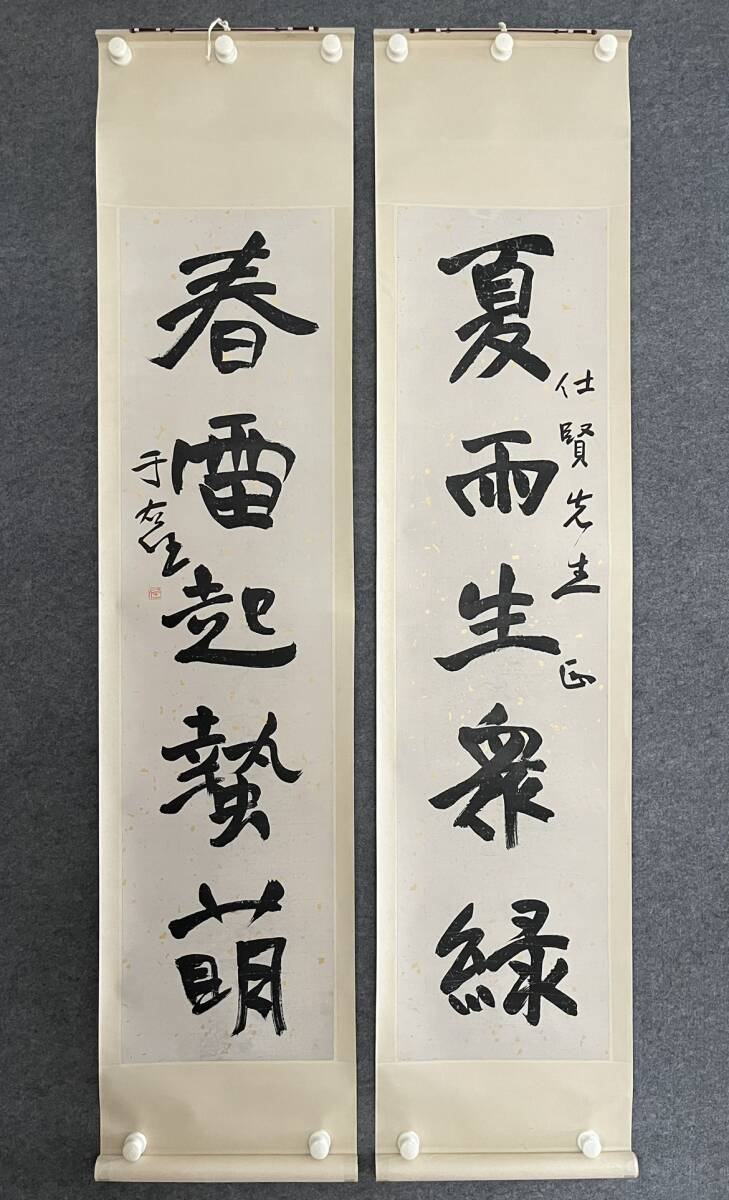 夏雨生眾綠
仕賢先生正
春雷起蟄萌
于右任